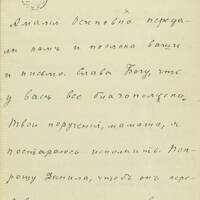 Амалія Осиповна переда-
ли намъ и поклонъ вашъ
и письмо. Слава Богу, что
у васъ все благополучно.
Твои порученія, мамаша, я
постараюсь исполнить. Поп-
рошу Данила, чтобъ онъ пере-